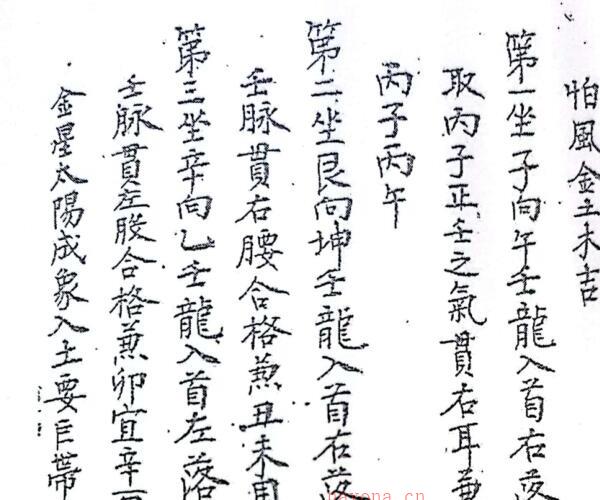 怕風金土未吉
第一坐子向午壬龍入首右落
取丙子正壬之氣貫右耳兼
丙子丙午
第二坐艮向坤壬龍入首右落
壬脉貫右腰合格兼丑未用
第三坐辛向乙壬龍入首左落
壬脉貫左股合格兼卯宜辛
金星太陽成象入土要巨帶